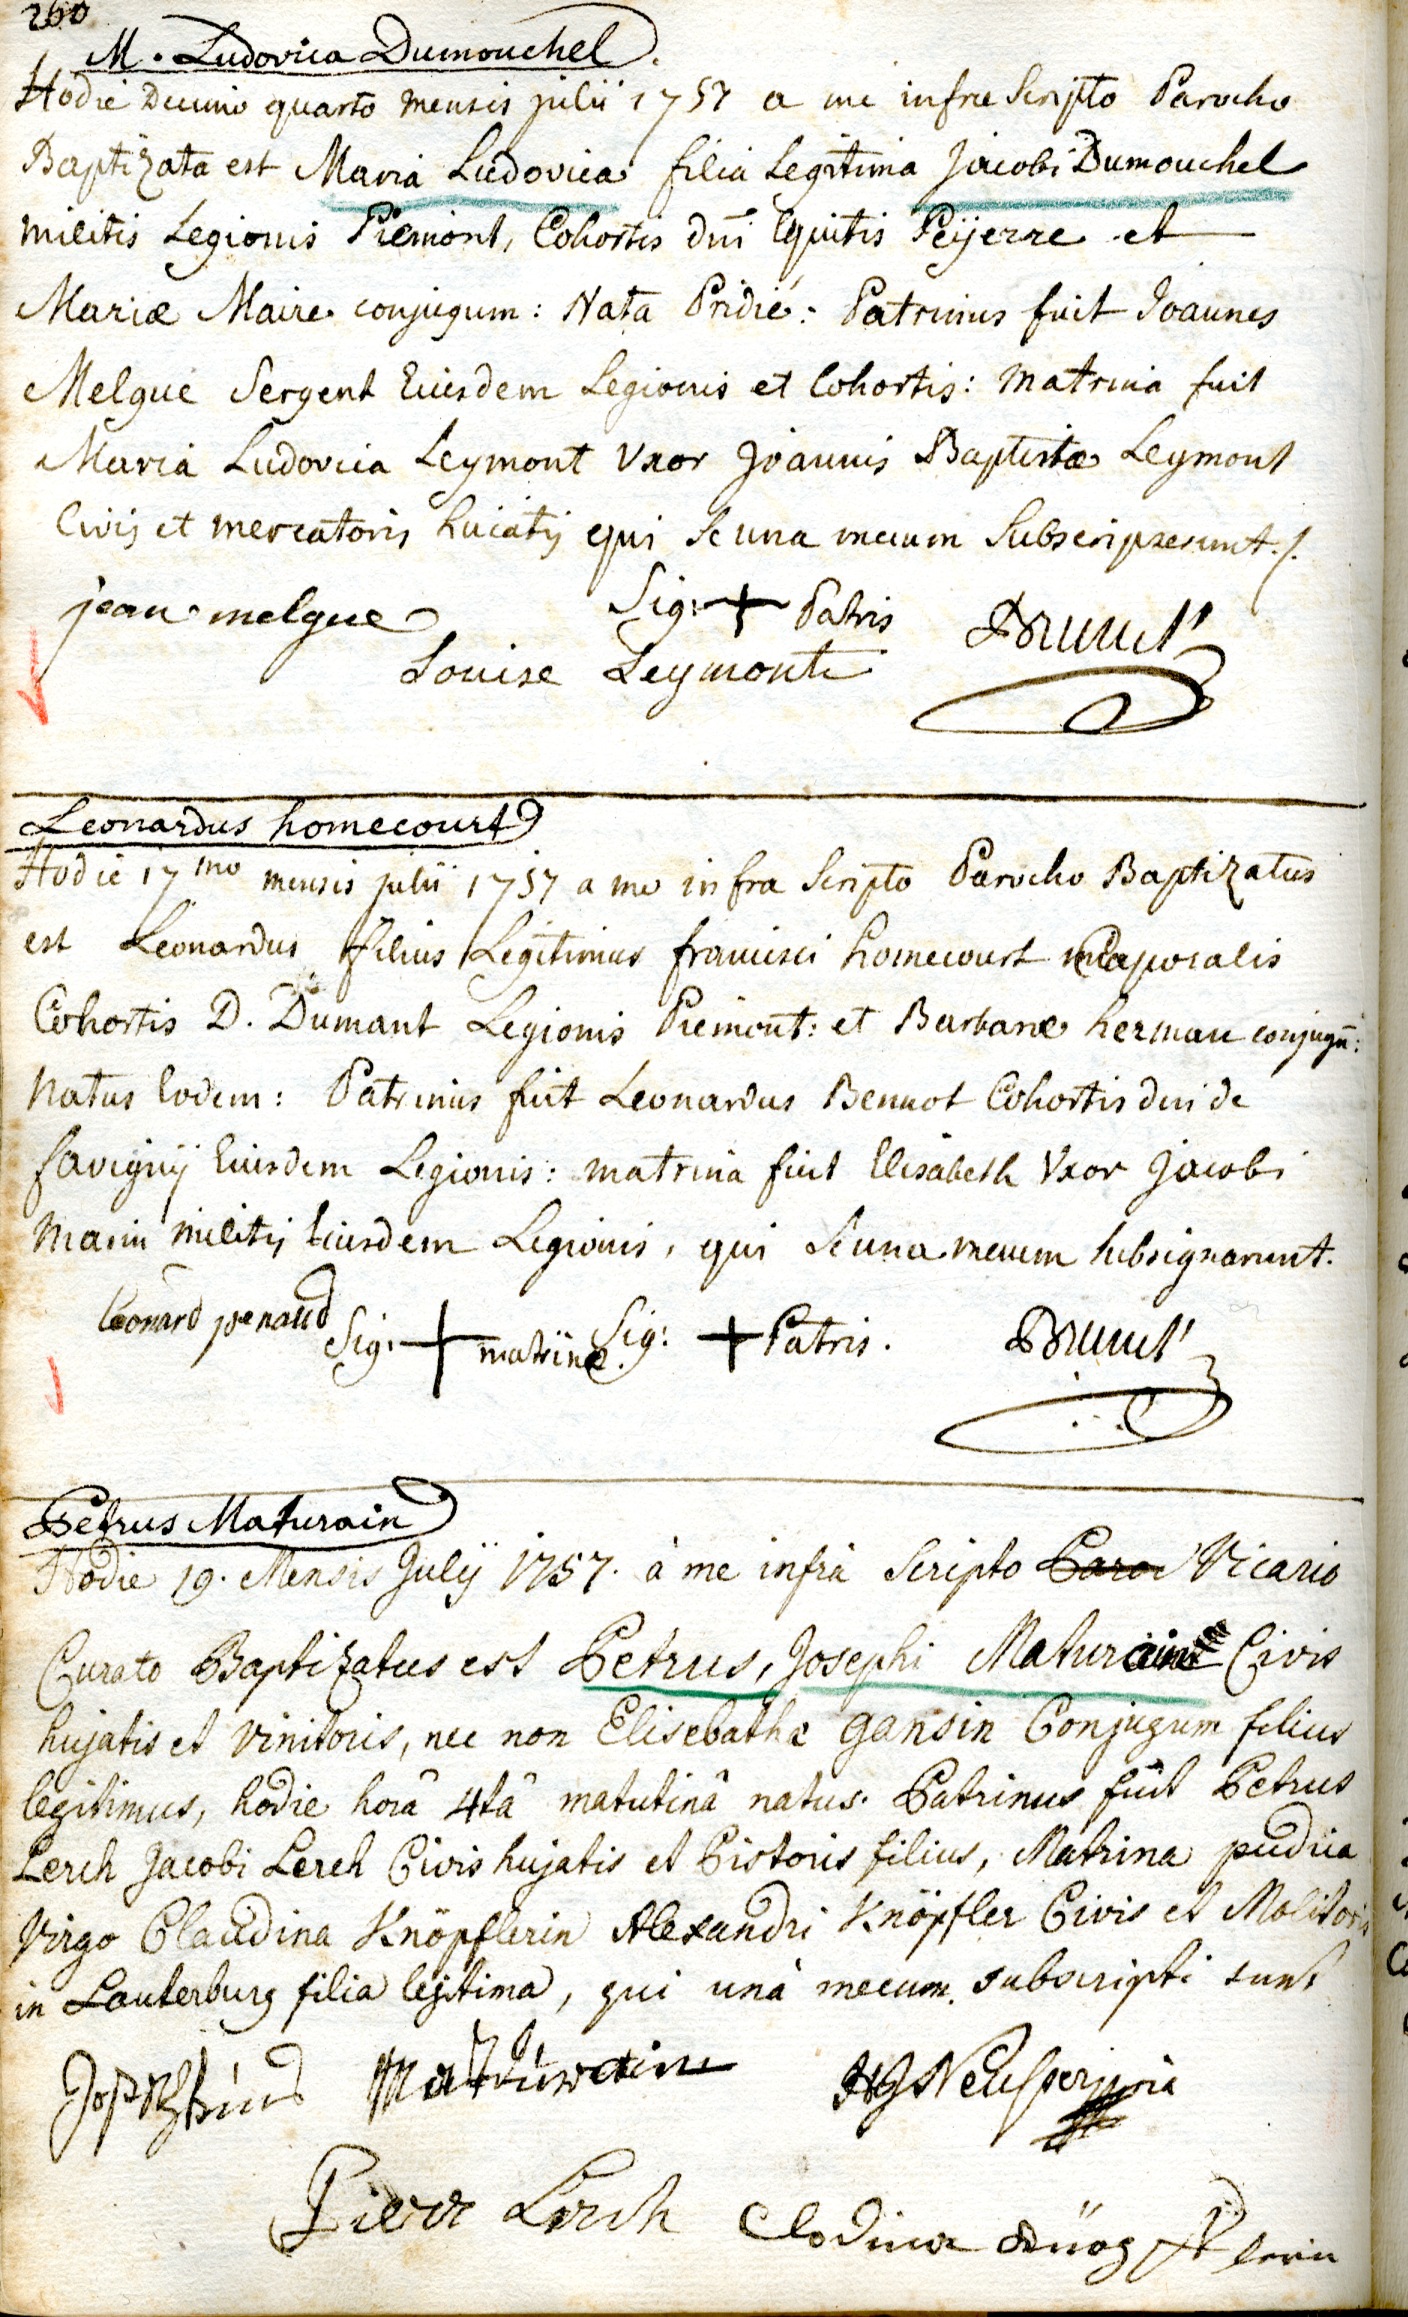 260
M. Ludovica Dumouchel.
Hodie Decimo quarto mensis julii 1757 a me infra Scripto Parocho
Baptizata est Maria Ludovica filia Legitima Jacobi Dumouchel
militis Legionis Piemont, Cohortis dni Equitis Peijerre et
Mariæ Maire conjugum: Nata Pridie: Patrinus fuit Joannes
Melgue Sergent Eiusdem Legionis et Cohortis: matrina fuit
Maria Ludovica Leymont Uxor Joannis Baptistæ Leymont
Civis et mercatoris huiatis qui se una mecum Subscripserunt./.
jean melgue Sig: + Patris Brunet
Louise Leymont
Leonardus homecourt
Hodie 17mo mensis julii 1757 a me infra Scripto Parocho Baptizatus
est Leonardus filius Legitimus francisci homecourt Caporalis
Cohortis D. Dumant Legionis Piemont: et Barbaræ herman conjugū:
Natus Eodem: Patrinus fuit Leonardus Bennot Cohortis dni de
favigny Eiusdem Legionis: matrina fuit Elisabeth Uxor Jacobi
Marin militis Eiusdem Legionis, qui Se una mecum subsignarunt.
leonard penaud Sig: + matrinæ. Sig: + Patris. Brunet
Petrus Maturain
Hodie 19. Mensis Julij 1757. à me infrà Scripto Paro Vicario
Curato Baptizatus est Petrus, Josephi Maturain Civis
hujatis et vinitoris, nec non Elisebathæ Gansin Conjugum filius
legitimus, hodie horâ 4tâ matutinâ natus. Patrinus fuit Petrus
Lerch Jacobi Lerch Civis hujatis et Pistoris filius, Matrina pudica
Virgo Claudina Knöpflerin Alexandri Knöpfler Civis et Molitoris
in Lauterburg filia legitima, qui unà mecum subscripti sunt
Pierr Lerch Clodina